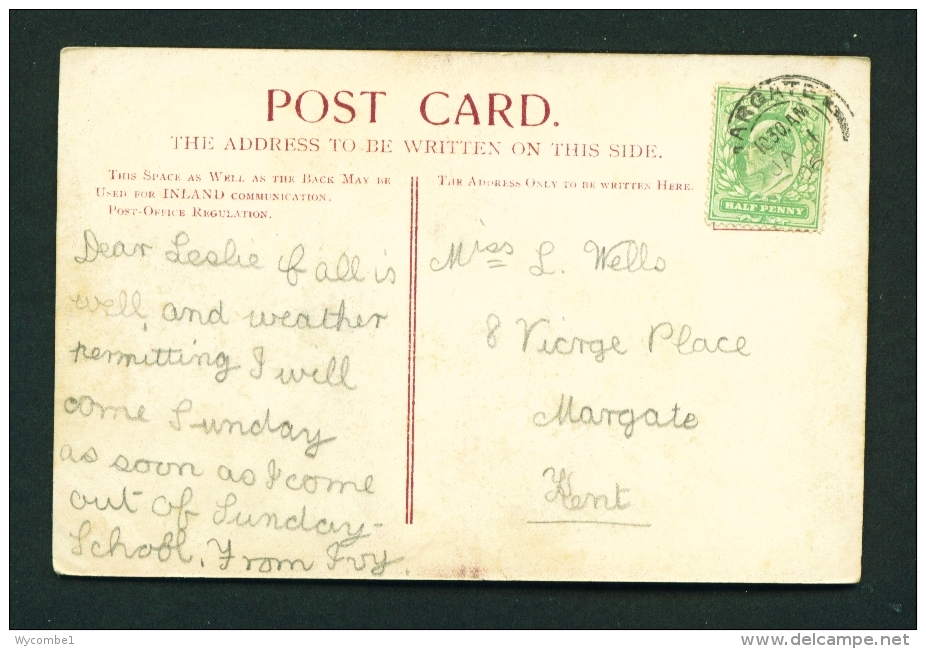 POST CARD.
THE ADDRESS TO BE WRITTEN ON THIS SIDE.
THIS SPACE AS WELL AS THE BACK MAY BE
USED FOR INLAND COMMUNICATION.
POST-OFFICE REGULATION.
THE ADDRESS ONLY TO BE WRITTEN HERE.
MARGATE
10.30 AM
JA
HALF PENNY
Dear Leslie if all is
well, and weather
permitting I will
come Sunday
as soon as I come
out of Sunday-
School. From Ivy.
Miss L. Wells
8 Vicrge Place
Margate
Kent
Wycombe1
www.delcampe.net